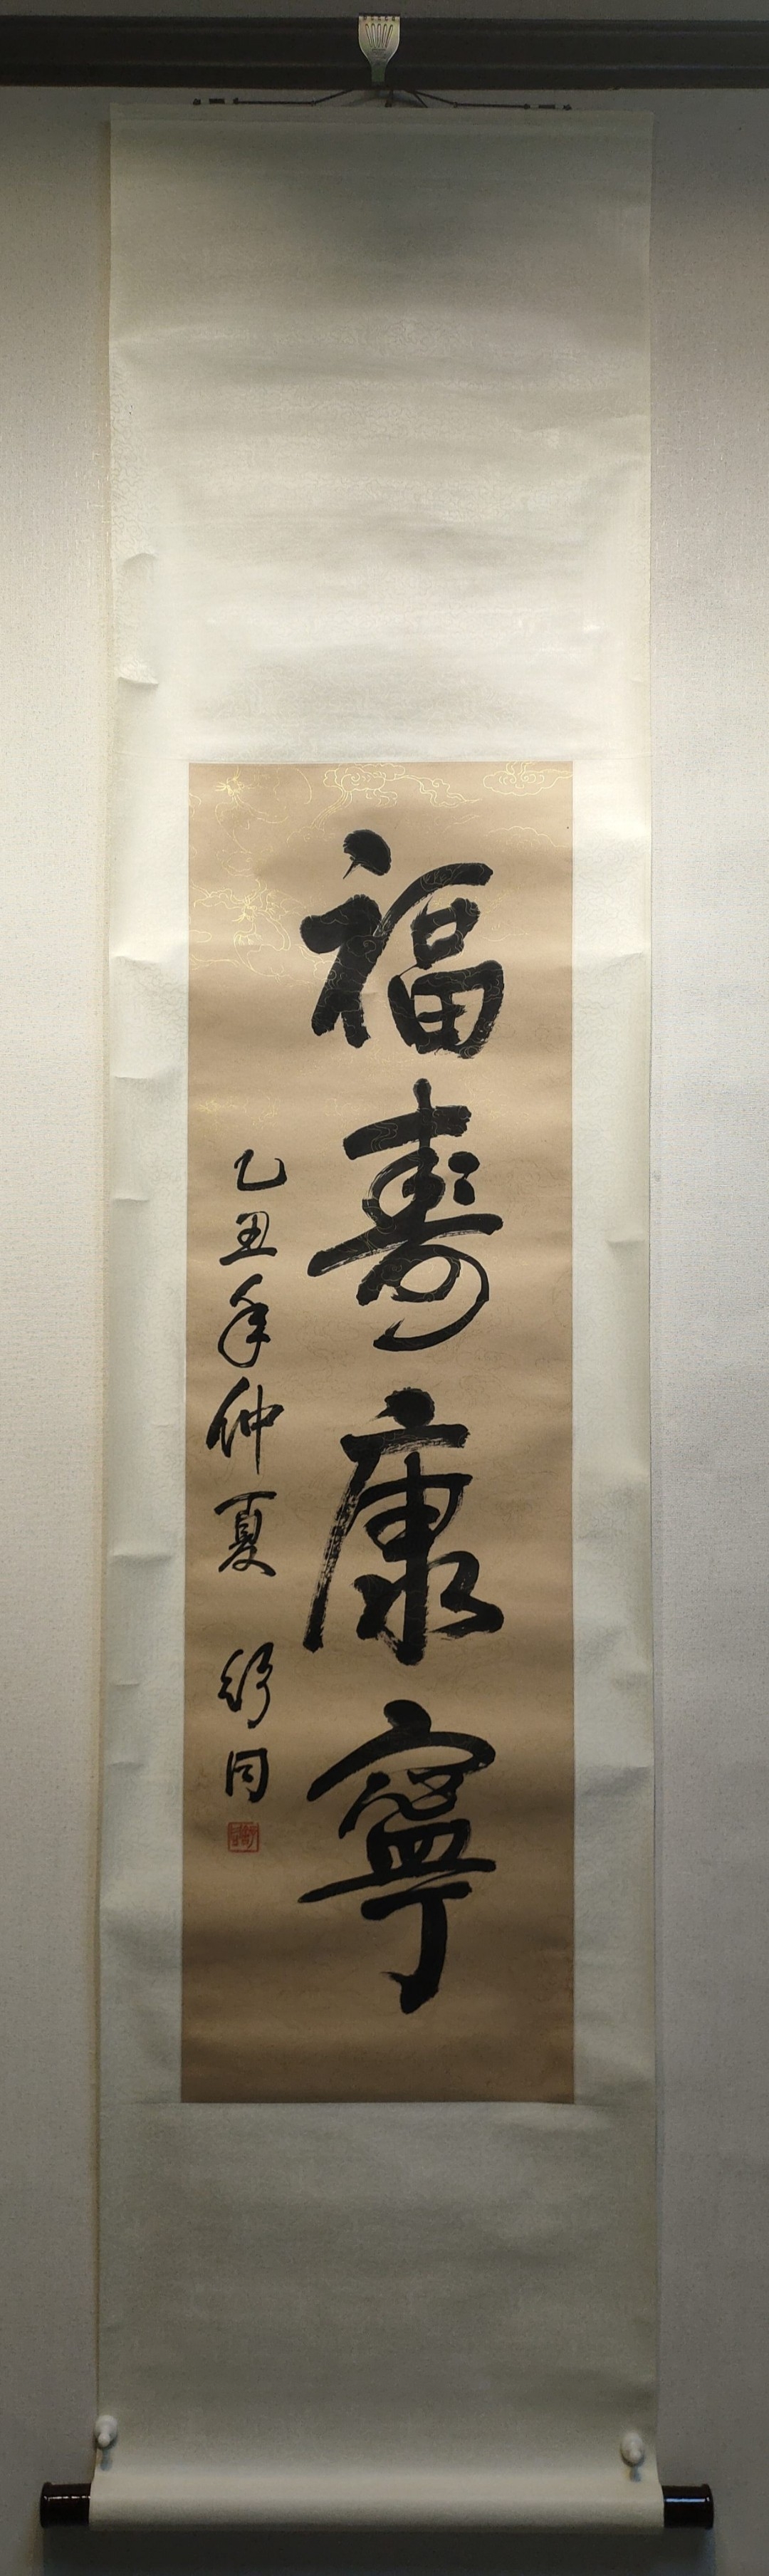 福壽康寧
乙丑年仲夏 舒同